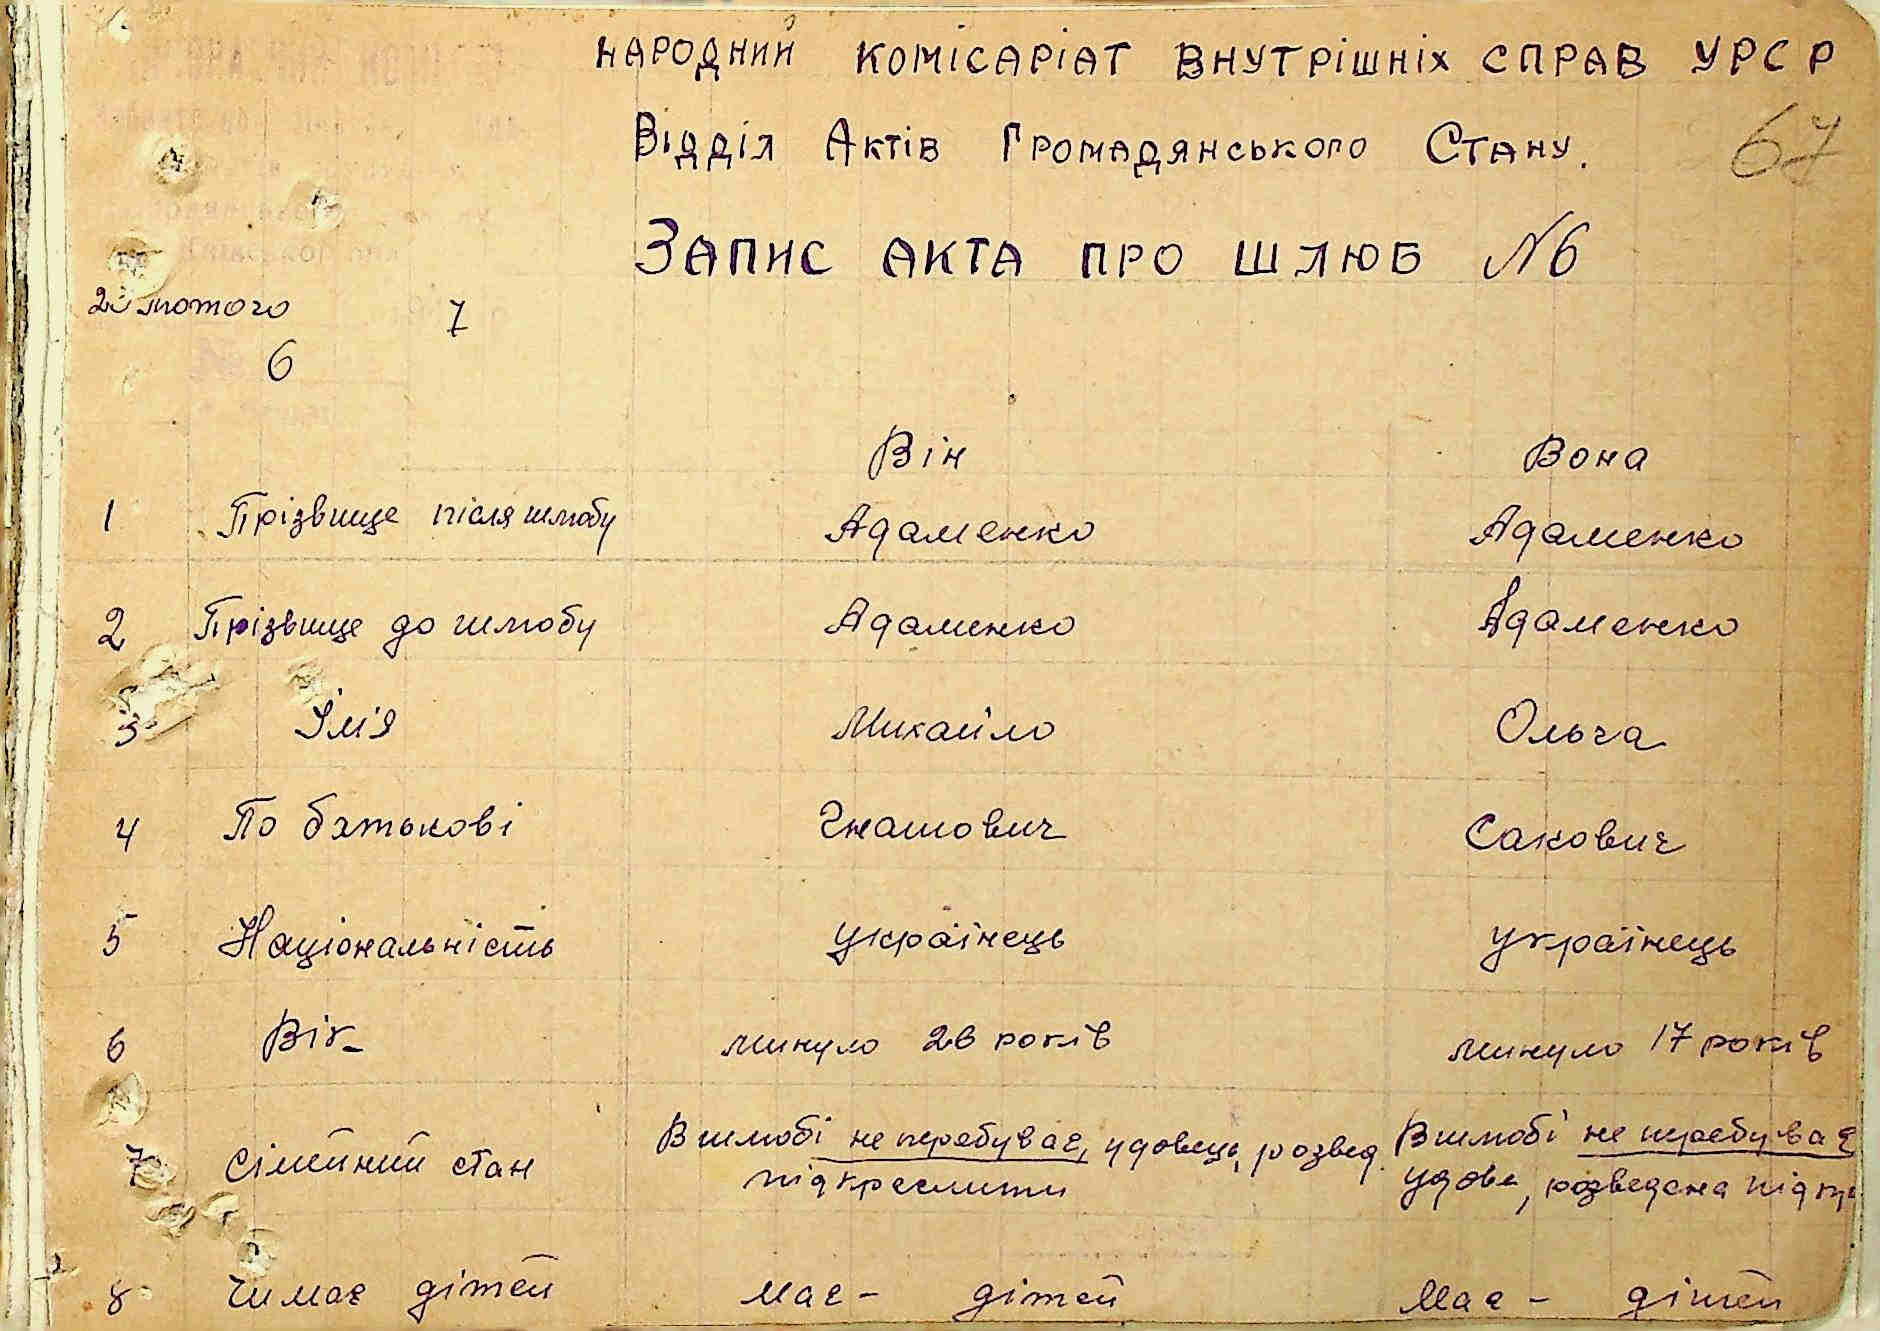 НАРОДНИЙ КОМІСАРІАТ ВНУТРІШНІХ СПРАВ УРСР
Відділ Актів Громадянського Стану.
67
Запис акта про шлюб №6
23 лютого 7
6
Він Вона
1 Прізвище після шлюбу Адаменко Адаменко
2 Прізвище до шлюбу Адаменко Адаменко
3 Імʼя Михайло Ольга
4 По батькові Гнатович Сакович
5 Національність українець українець
6 Вік минуло 26 років минуло 17 років
7 Сімейний стан В шлюбі не перебуває, удовець, розвед. В шлюбі не перебуває
підкреслити удова, розведена підкр
8 Чи має дітей має - дітей має - дітей